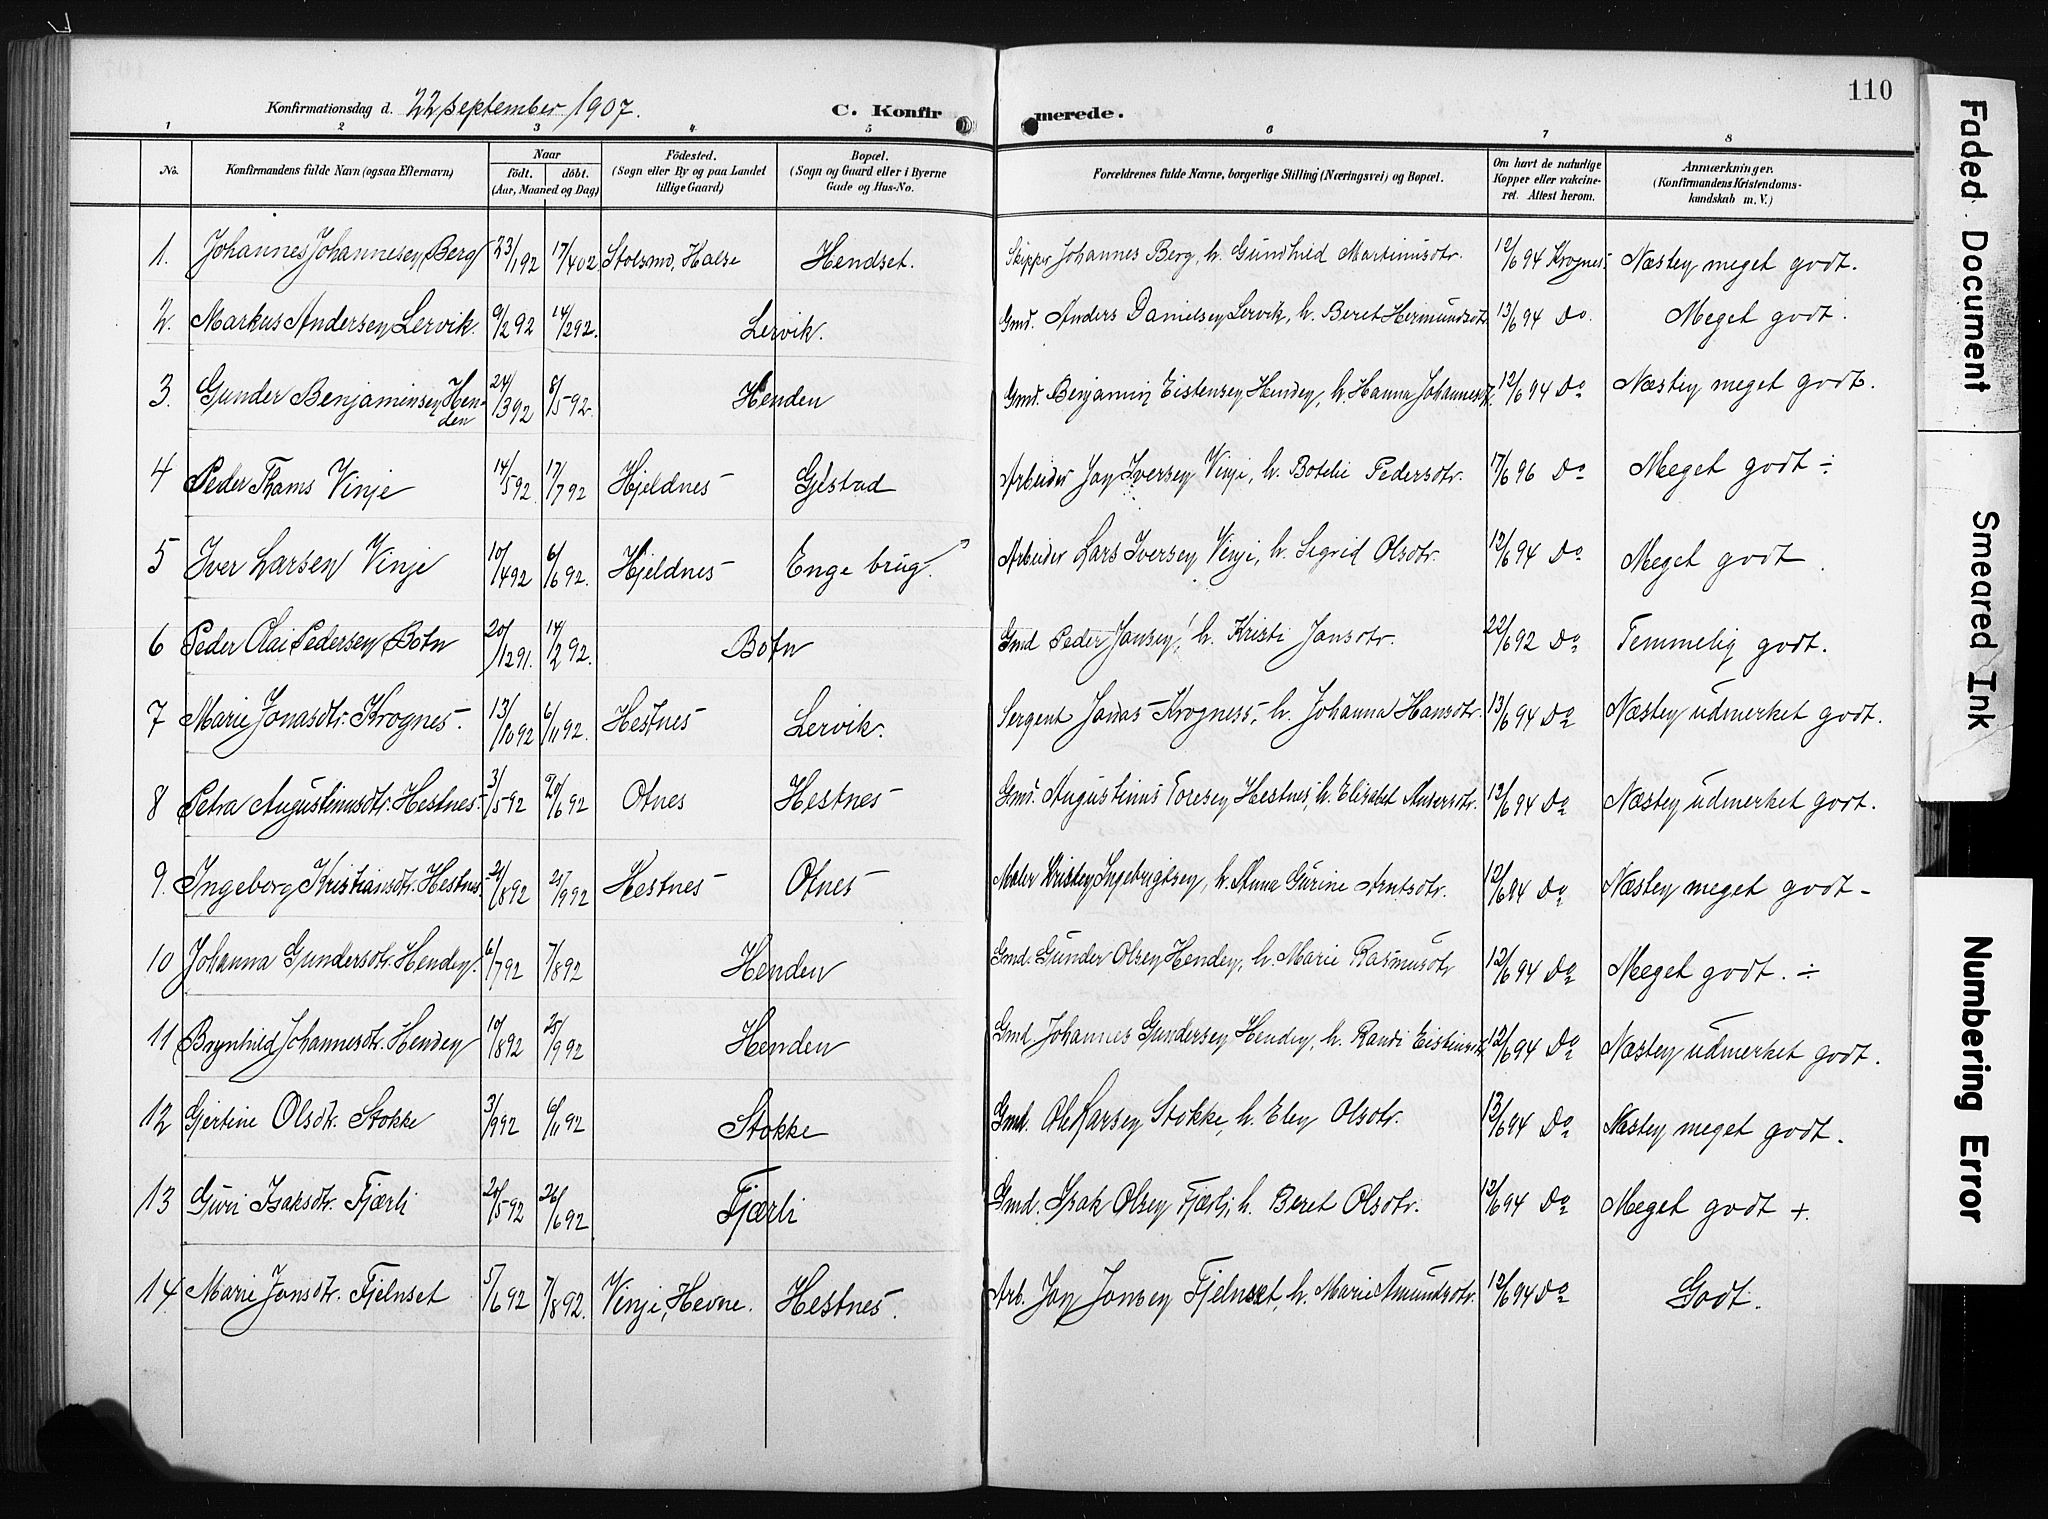 Konfirmationsdag d. 22 september 1907. C. Konfirmerede. 110
1 2 3 4 5 6 7 8
No. Konfirmandens fulde Navn (ogsaa Efternavn) Naar födt. döbt. (Aar, Maaned og Dag) Födested. (Sogn eller By og paa Landet tillige Gaard) Bopæl. (Sogn og Gaard eller i Byerne Gade og Hus-No. Forældrenes fulde Navne, borgerlige Stilling (Næringsvei) og Bopæl. Om havt de naturlige Kopper eller vakcineret. Attest herom. Anmærkninger. (Konfirmandens Kristendomskundskab m. V.)
1. Johannes Johannesen Berg 23/1 92 17/4 02 Stolsmo, Halse Hendset. Skipper Johannes Berg, h. Gundhild Martinusdtr. 12/6 94 Krognes. Næsten meget godt.
2. Markus Andersen Lervik. 9/2 92 14/2 92. Lervik. Gmd. Anders Danielsen Lervik, h. Beret Hermundsdtr. 13/6 94 Do. Meget godt.
3. Gunder Benjaminsen Henden 24/3 92 8/5 92. Henden Gmd. Benjamin Eistensen Henden, h. Hanna Johannesdt. 12/6 94 Do Næsten meget godt.
4 Peder Thams Vinje 14/5 92. 17/7 92 Hjeldnes Gjestad Arbeider Jon Iversen Vinje, h. Botelie Pedersdtr. 17/6 96 Do Meget godt ÷
5 Iver Larsen Vinje 10/4 92 6/6 92. Hjeldnes Enge brug. Arbeider Lars Iversen Vinje, h. Sigrid Olsdtr. 12/6 94 Do Meget godt.
6 Peder Olai Pedersen Botn 20/12 91. 14/2 92. Botn Gmd Peder Jansen, h. Kristi Jonsdtr. 22/6 92 Do Temmelig godt.
7 Marie Jonasdtr. Krognes. 13/10 92 6/11 92. Hestnes Lervik. Sergent Jonas Krogness, h. Johanna Hansdtr. 13/6 94 Do Næsten udmerket godt.
8 Petra Augustinusdtr. Hestnes. 3/5 92 20/6 92 Otnes Hestnes Gmd. Augustinus Toresen Hestnes, h. Elisabet Andersdtr. 12/6 94 Do Næsten udmerket godt.
9. Ingeborg Kristiansdtr. Hestnes. 21/8 92 25/9 92 Hestnes Otnes Maler Kristen Ingebrigtsen, h. Anna Gurine Arntsdtr. 12/6 94 Do Næsten meget godt -
10 Johanna Gundersdtr. Henden. 6/7 92 7/8 92 Henden Gmd. Gunder Olsen Henden, h. Marie Rasmusdtr 12/6 94 Do Meget godt. ÷
11 Brynhild Johannesdtr. Henden 10/8 92 25/9 92 Henden Gmd. Johannes Gundersen Henden, h. Randi Eistensdtr. 12/6 94 Do Næsten udmerket godt.
12 Gjertine Olsdtr. Stokke 3/9 92 6/11 92 Stokke Gmd. Ole Larsen Stokke, h. Elen Olsdtr. 13/6 94 Do Næsten meget godt.
13 Guri Isaksdtr. Fjærli 20/5 92 26/6 92 Fjærli Gmd. Isak Olsen Fjærli, h. Beret Olsdtr. 12/6 94 Do Meget godt +.
14 Marie Jonsdtr. Fjelnset 5/6 92 7/8 92. Vinje, Hevne. Hestnes. Arb. Jon Jonsen Fjelnset, h. Marie Amundsdtr. 12/6 94 Do Godt.
Faded Document
Smeared Ink
Numbering Error